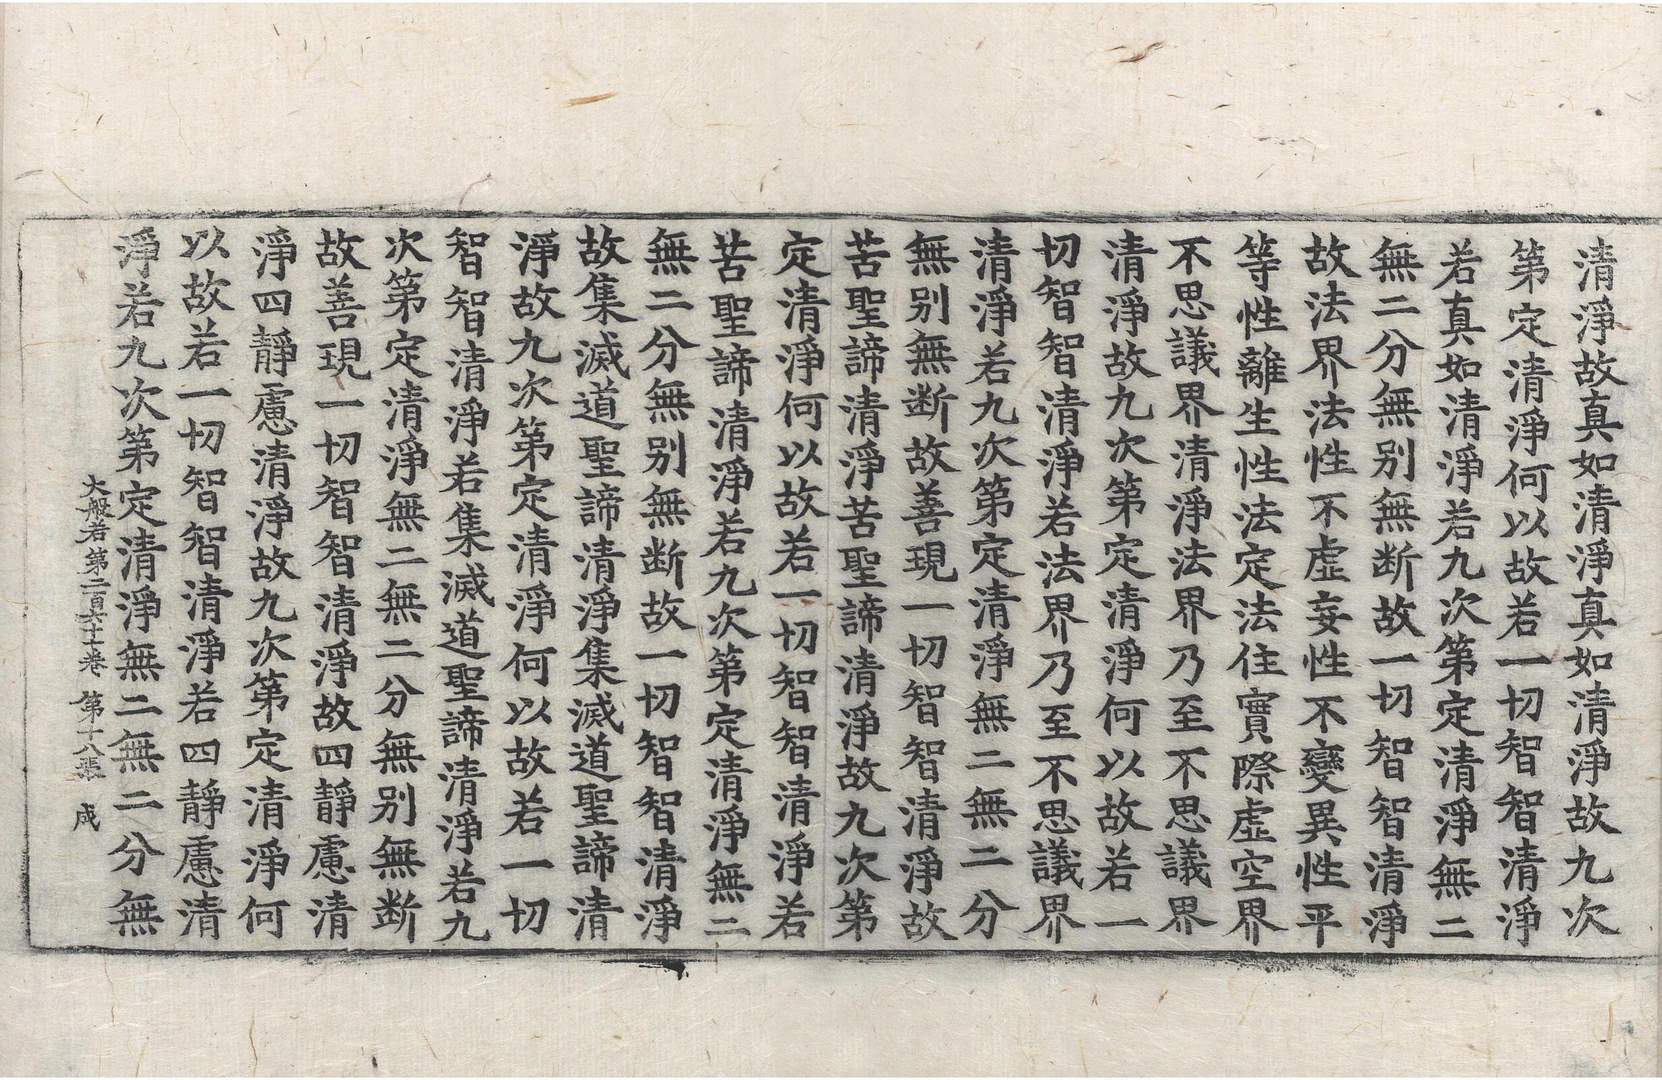 清淨故真如清淨真如清淨故九次
第定清淨何以故若一切智智清淨
若真如清淨若九次第定清淨無二
無二分無别無断故一切智智清淨
故法界法性不虛妄性不變異性平
等性離生性法定法住實際虛空界
不思議界清淨法界乃至不思議界
清淨故九次第定清淨何以故若一
切智智清淨若法界乃至不思議界
清淨若九次第定清淨無二無二分
無别無断故善現一切智智清淨故
苦聖諦清淨苦聖諦清淨故九次第
定清淨何以故若一切智智清淨若
苦聖諦清淨若九次第定清淨無二
無二分無别無断故一切智智清淨
故集滅道聖諦清淨集滅道聖諦清
淨故九次第定清淨何以故若一切
智智清淨若集滅道聖諦清淨若九
次第定清淨無二無二分無别無断
故善現一切智智清淨故四靜慮清
淨四靜慮清淨故九次第定清淨何
以故若一切智智清淨若四靜慮清
淨若九次第定清淨無二無二分無
大般若第二百六十七卷 第十八張 成